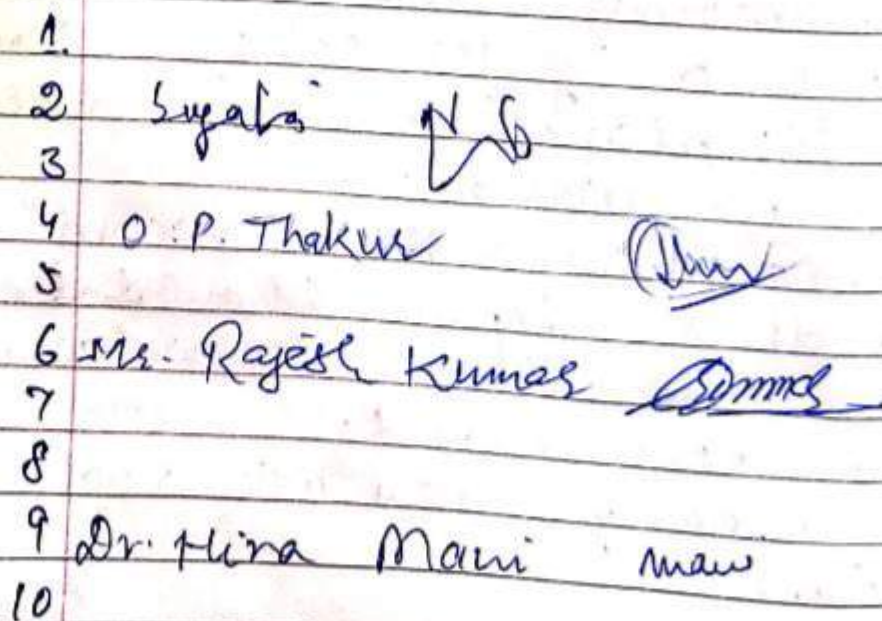 1.
2
3
4 O. P. Thakur
5
6 Mr. Rajesh Kumar
7
8
9 Dr. Hira Mani mani
10